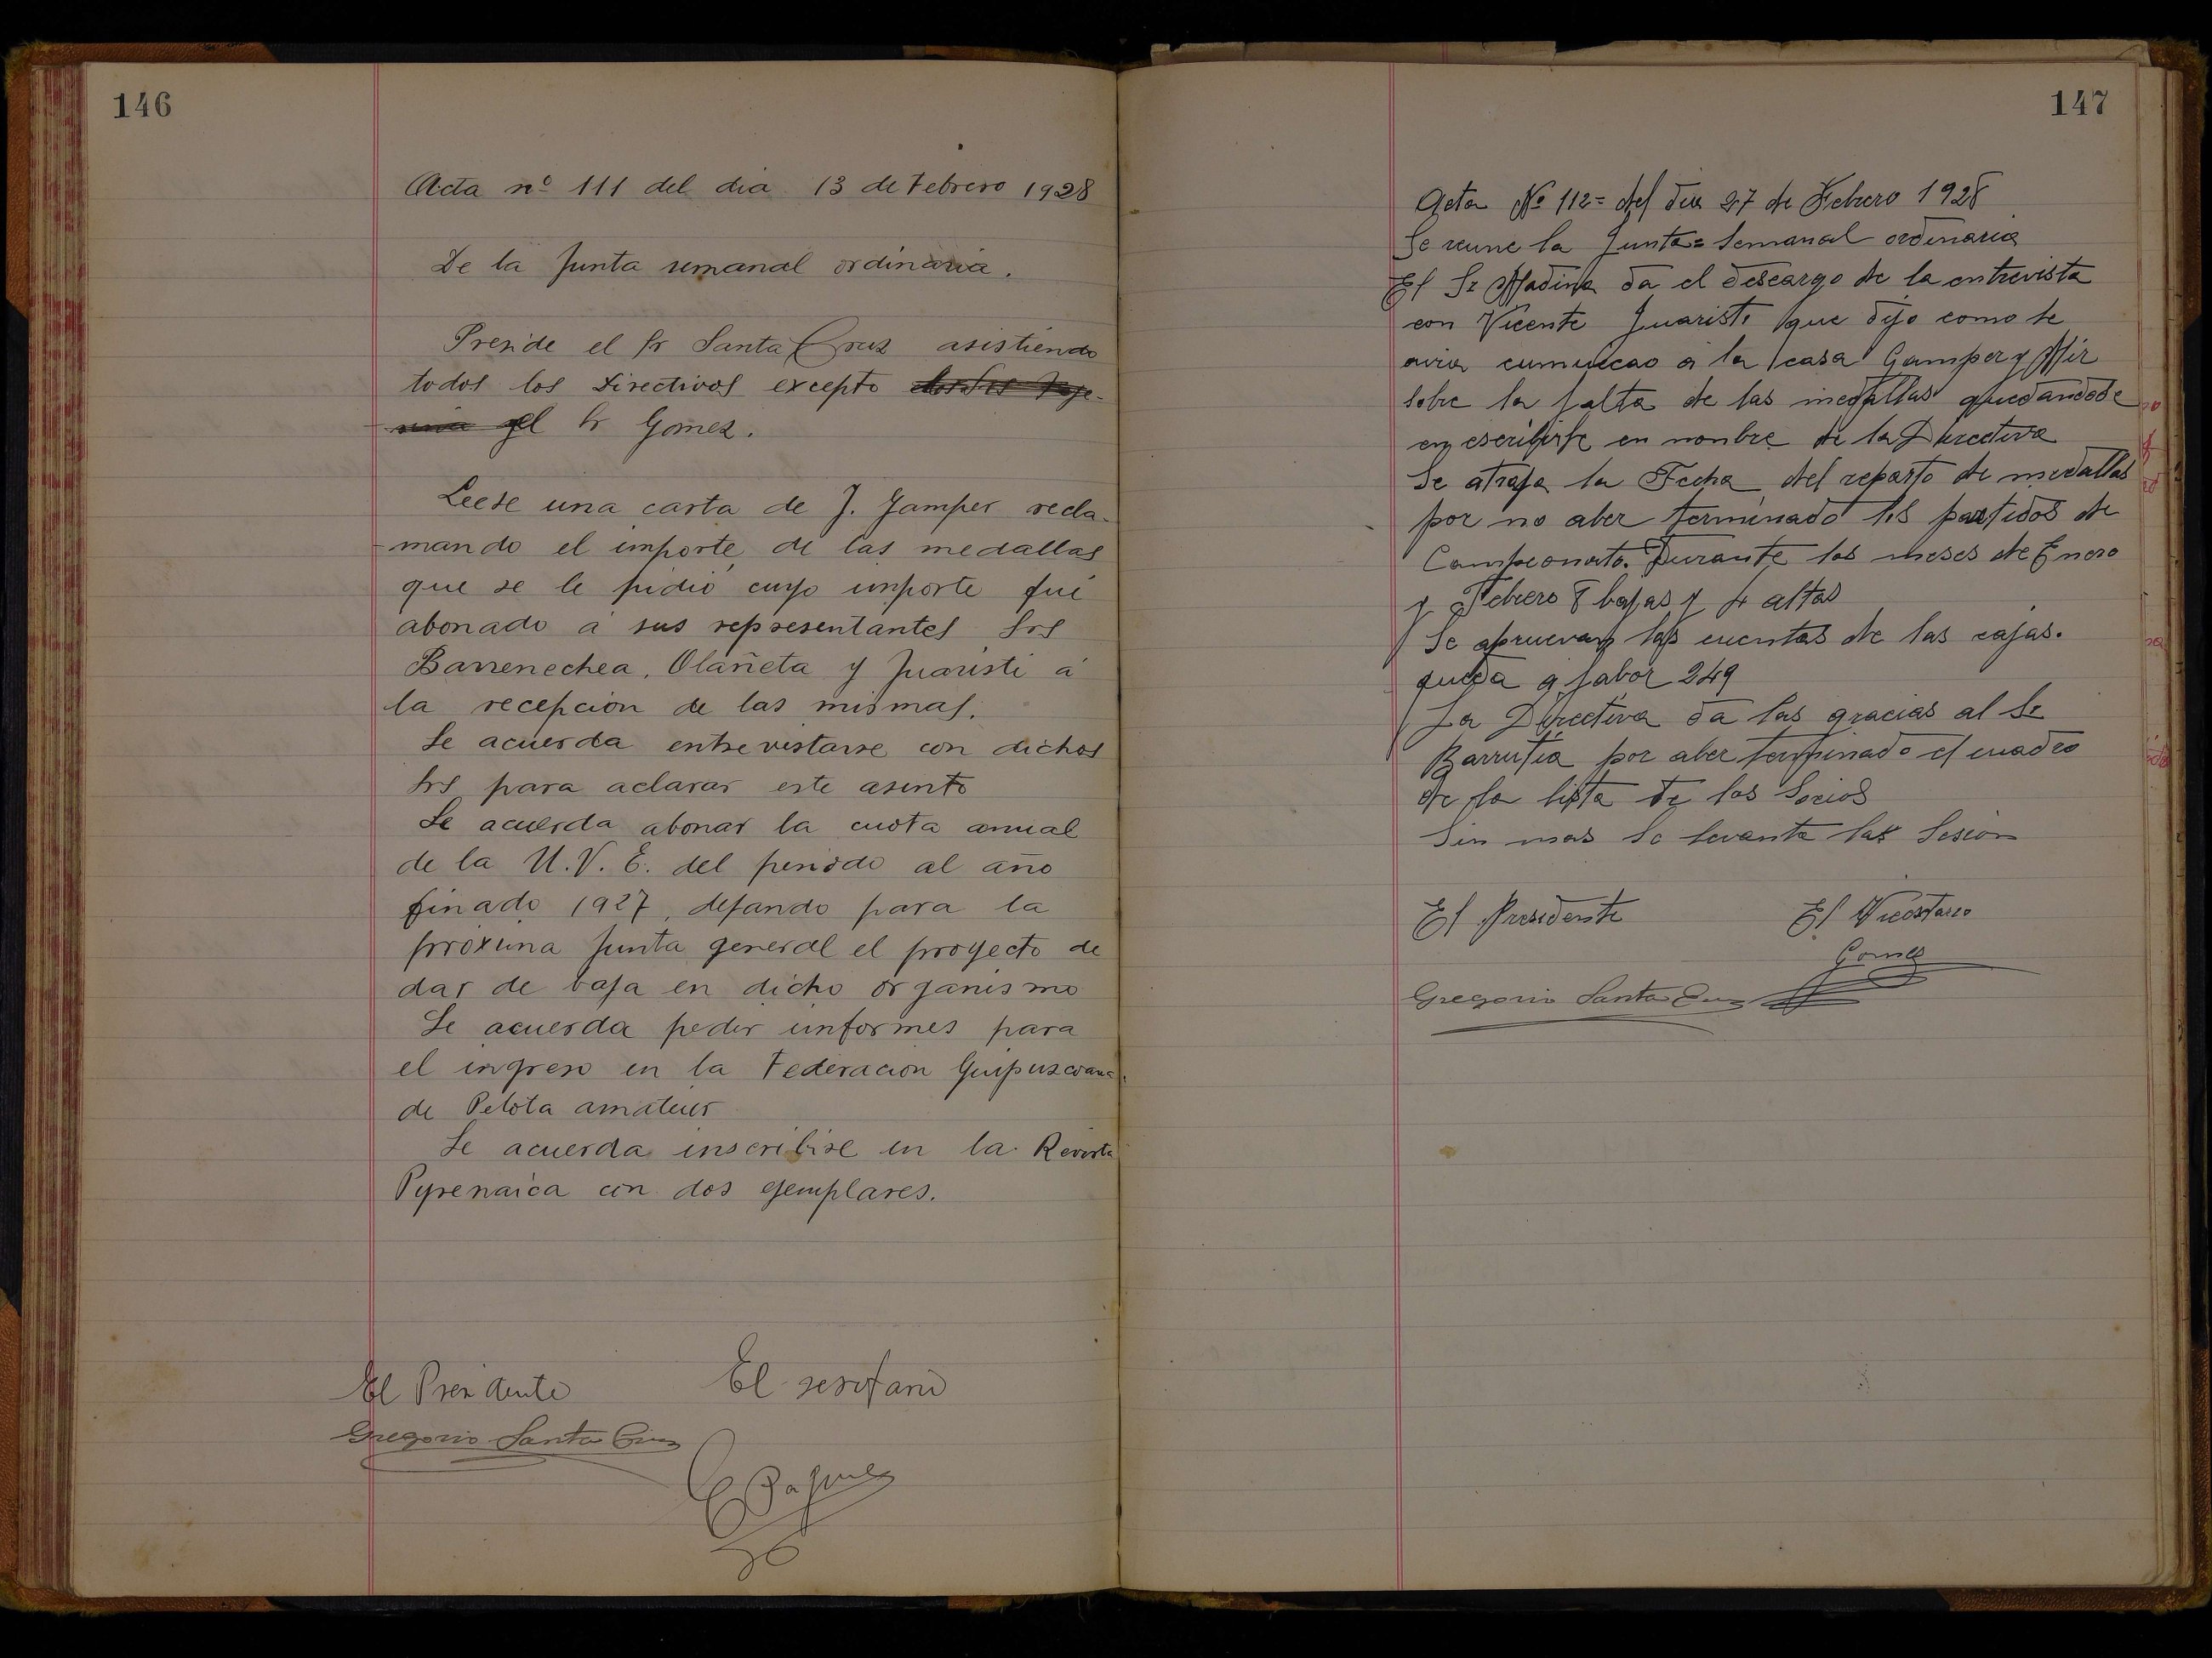 146
Acta nº 111 del dia 13 de Febrero 1928
De la Junta semanal ordinaria.
Preside el Sr Santa Cruz asistiendo
todos los Directivos excepto
el Sr Gomez.
Leese una carta de J. Gamper recla-
mando el importe de las medallas
que se le pidió cuyo importe fué
abonado á sus representantes Srs
Barrenechea, Olañeta y Juaristi á
la recepcion de las mismas.
Se acuerda entrevistarse con dichos
Srs para aclarar este asunto
Se acuerda abonar la cuota anual
de la U.V.E. del periodo al año
finado 1927, dejando para la
próxima Junta general el proyecto de
dar de baja en dicho organismo
Se acuerda pedir informes para
el ingreso en la Federacion Guipuzcoana
de Pelota amateur
Se acuerda inscribirse en la Revista
Pyrenaica con dos ejemplares.
El Presidente El secretario
Gregorio Santa Cruz
147
Acta Nº 112= del dia 27 de Febrero 1928
Se reune la Junta= Semanal ordinaria
El Sr Madina da el descargo de la entrevista
con Vicente Juaristi que dijo como se
avia cumuicao a la casa Gamper y Mir
sobre la falta de las medallas quedandose
en escribirle en nonbre de la Directiva
Se atrasa la Fecha del reparto de medallas
por no aber terminado los partidos de
Campeonato. Durante los meses de Enero
y Febrero 8 bajas y 4 altas
Se apruevan las cuentas de las cajas.
queda a fabor 249
La Directiva da las gracias al Sr
Barrutia por aber terminado el cuadro
de la lista de los Socios
Sin mas se levanta la Sesion
El Presidente El Vicestario
Gomez
Gregorio Santa Cruz